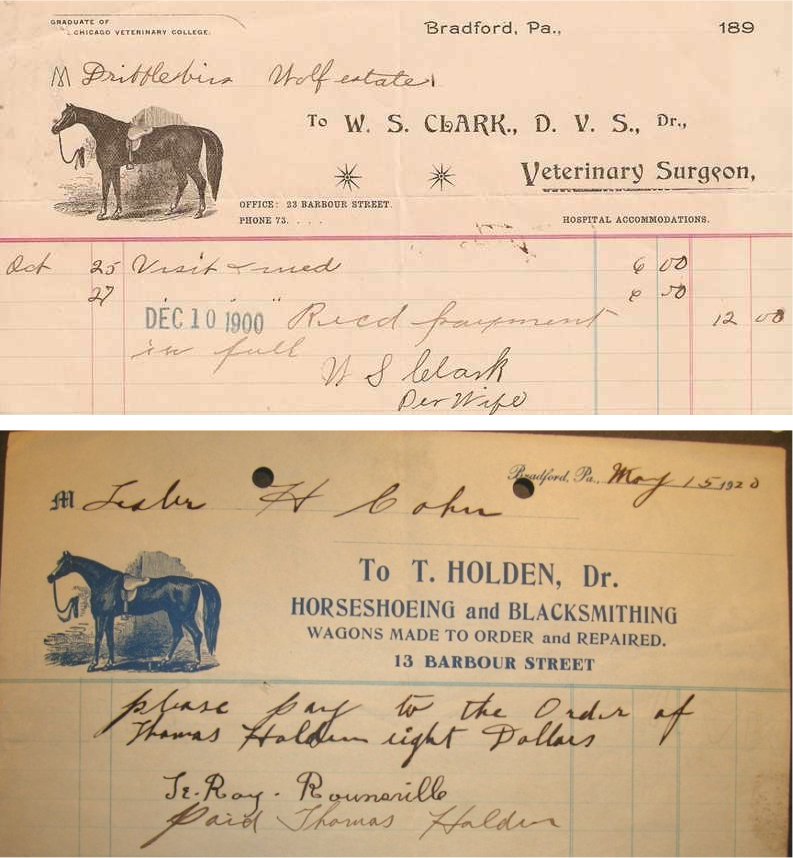 GRADUATE OF
CHICAGO VETERINARY COLLEGE.
Bradford, Pa., 189
M Wolf estate
To W. S. CLARK., D. V. S., Dr.,
Veterinary Surgeon,
OFFICE: 23 BARBOUR STREET.
PHONE 73. . . .
HOSPITAL ACCOMMODATIONS.
Oct 25 Visit & med 6 00
27 " " "
DEC 10 1900 Recd payment 12 00
in full
W S Clark
Per Wife
Bradford, Pa., May 15 1920
M Lester H Cohn
To T. HOLDEN, Dr.
HORSESHOEING and BLACKSMITHING
WAGONS MADE TO ORDER and REPAIRED.
13 BARBOUR STREET
please pay to the Order of
Thomas Holden eight Dollars
Le-Roy - Rounsville
Paid Thomas Holden